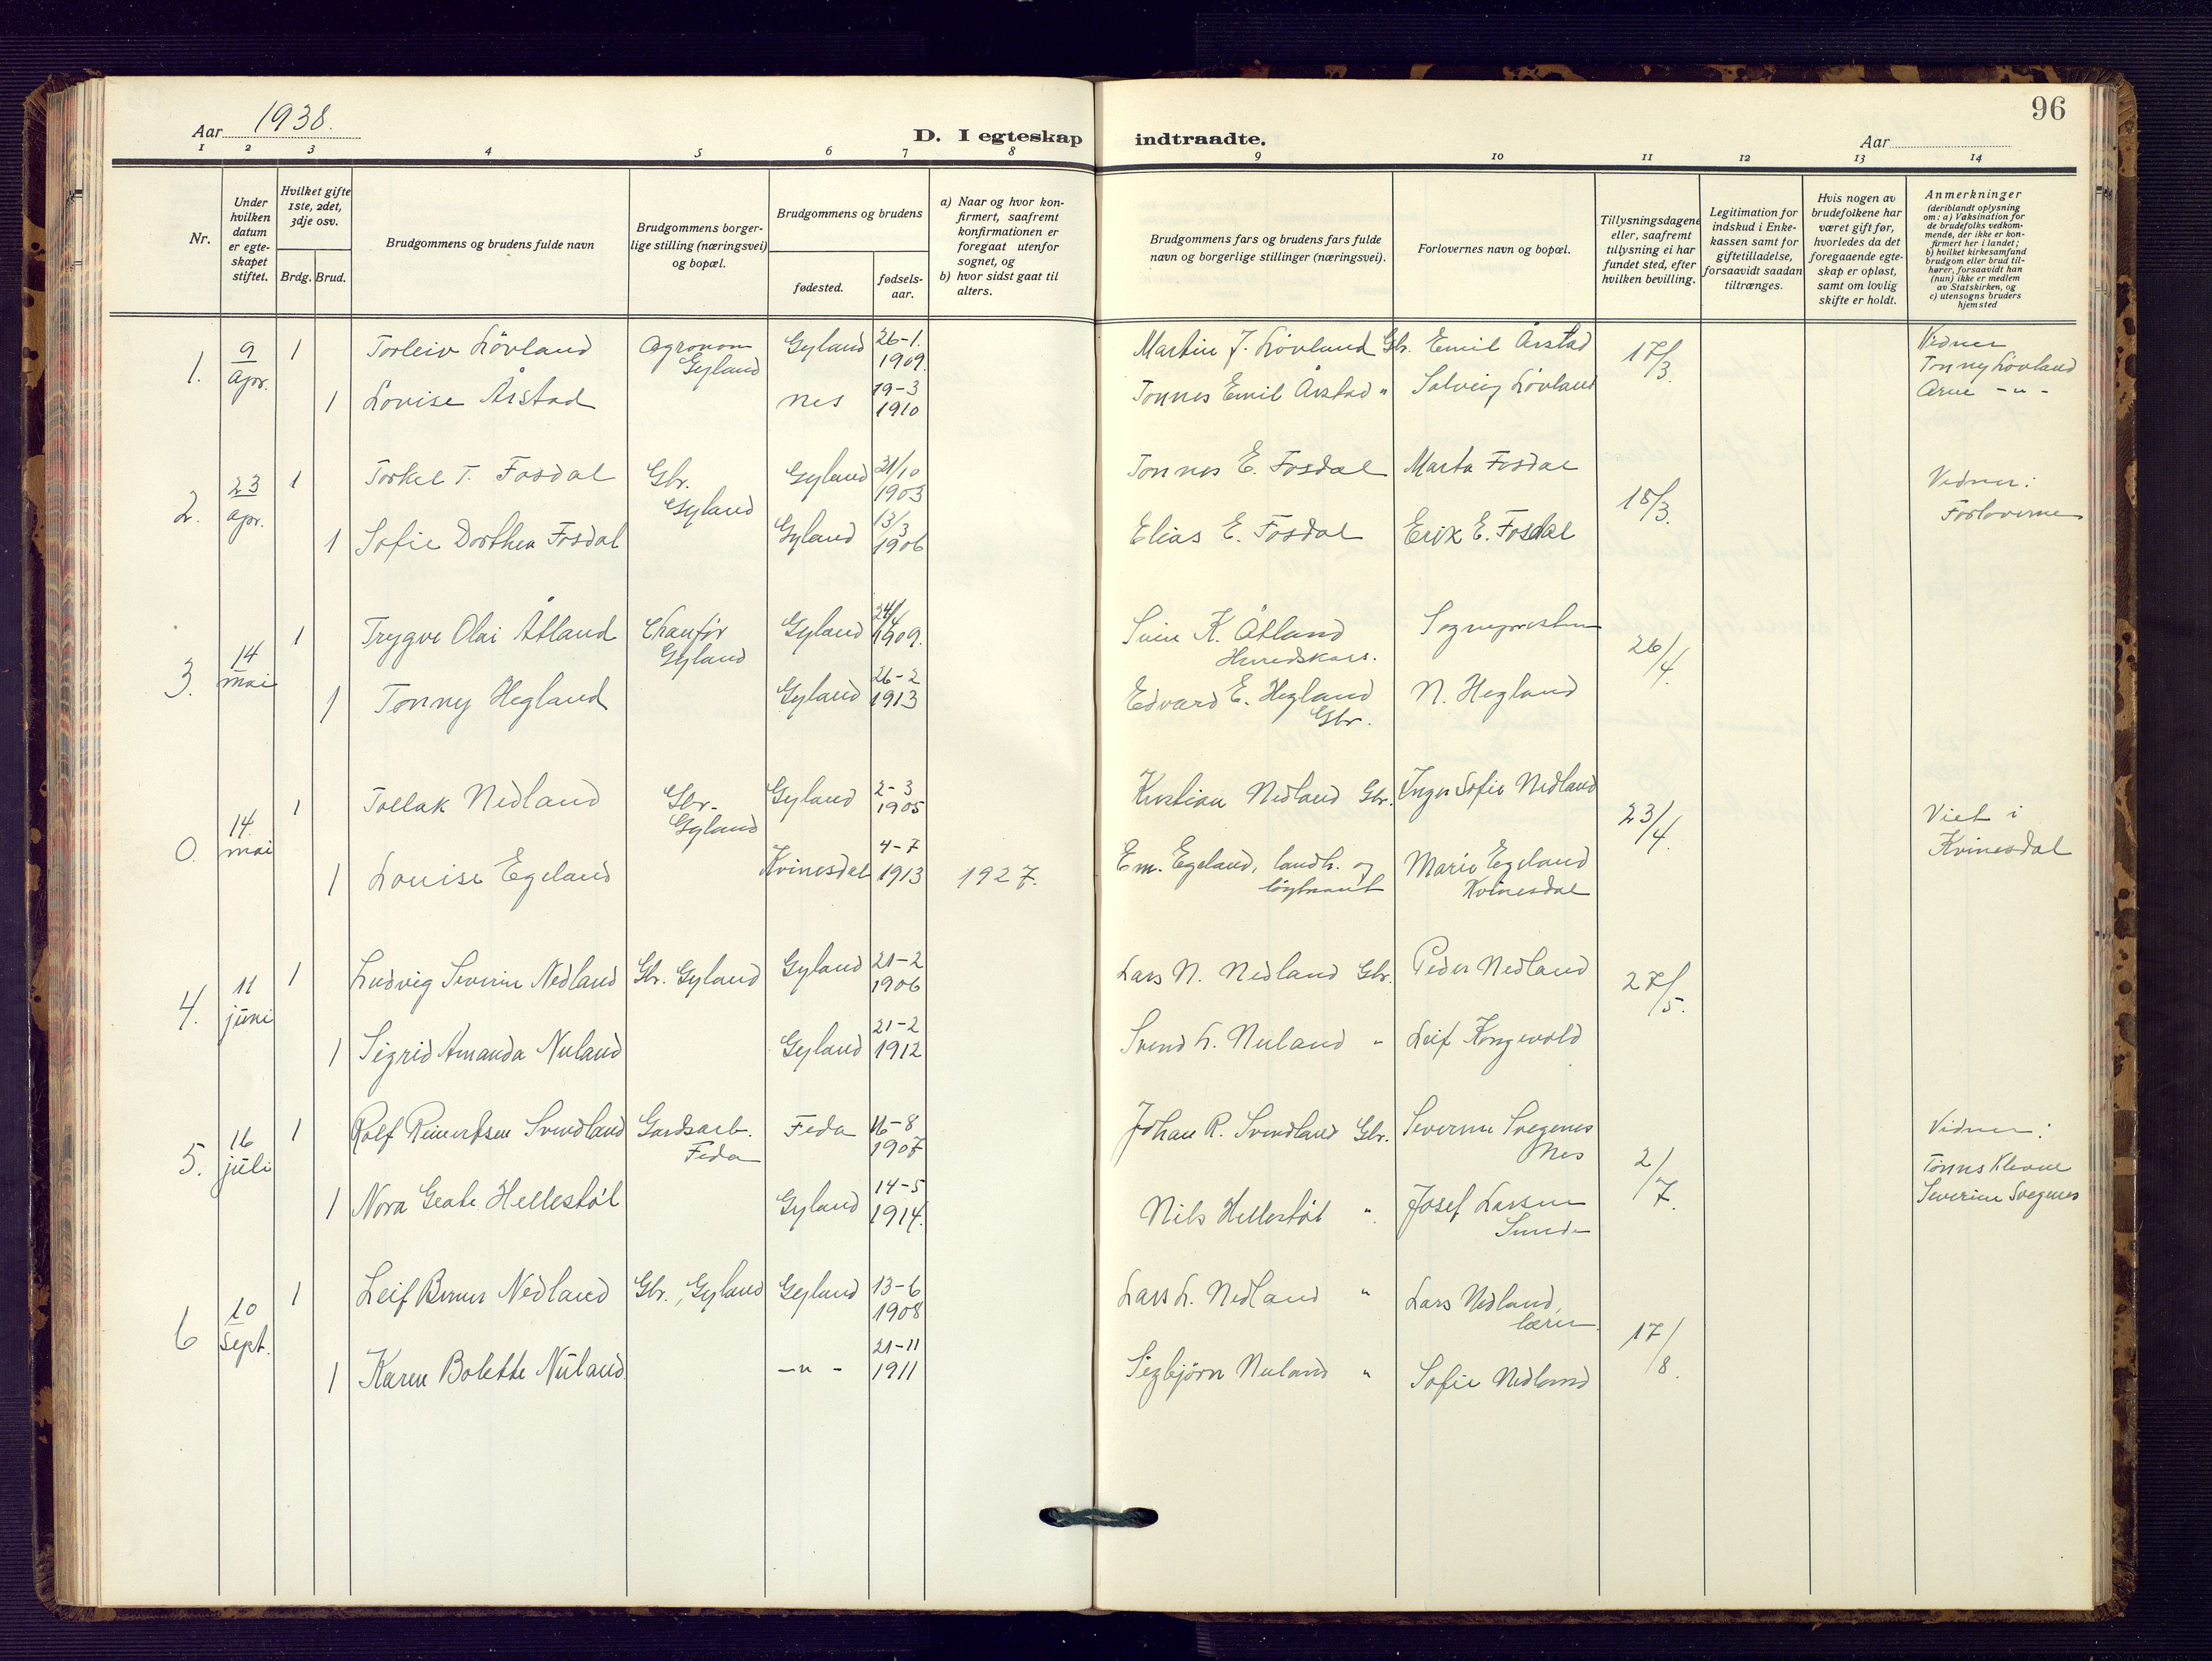 Aar 1938.
D. I egteskap indtraadte.
Aar
96
1 2 3 4 5 6 7 8 9 10 11 12 13 14
Nr.
Under hvilken datum er egteskapet stiftet.
Hvilket gifte 1ste, 2det, 3dje osv.
Brdg. Brud.
Brudgommens og brudens fulde navn
Brudgommens borger-
lige stilling (næringsvei)
og bopæl.
Brudgommens og brudens
fødested.
fødsels-
aar.
a) Naar og hvor kon-
firmert, saafremt
konfirmationen er
foregaat utenfor
sognet, og
b) hvor sidst gaat til
alters.
Brudgommens fars og brudens fars fulde
navn og borgerlige stillinger (næringsvei).
Forlovernes navn og bopæl.
Tillysningsdagene
eller, saafremt
tillysning ei har
fundet sted, efter
hvilken bevilling.
Legitimation for
indskud i Enke-
kassen samt for
giftetilladelse,
forsaavidt saadan
tiltrænges.
Hvis nogen av
brudefolkene har
været gift før,
hvorledes da det
foregaaende egte-
skap er opløst,
samt om lovlig
skifte er holdt.
Anmerkninger
(deriblandt oplysning
om: a) Vaksination for
de brudefolks vedkom-
mende, der ikke er kon-
firmert her i landet;
b) hvilket kirkesamfund
brudgom eller brud til-
hører, forsaavidt han
(hun) ikke er medlem
av Statskirken, og
c) utensogns bruders
hjemsted
1. 9 apr. 1 Torleiv Lövland Agronom Gyland Gyland 26-1. 1909. Martin J. Lövland Gbr. Emil Årstad 17/3 Vidner Tonny Lövland
1 Lovise Årstad Nes 19-3 1910 Tonnes Emil Årstad " Solveig Lövland Arne -"-
2. 23 apr. 1 Torkel T. Fosdal Gbr. Gyland Gyland 31/10 1903 Tonnes E. Fosdal Marta Fosdal 18/3. Vidner:
1 Sofie Dorthea Fosdal Gyland 13/3 1906 Elias E. Fosdal Erik E. Fosdal Forloverne
3. 14 mai 1 Trygve Olai Åtland Chauför Gyland Gyland 24/4 1909. Svein K. Åtland Herredskass. Sognepresten 26/4.
1 Tonny Hegland Gyland 26-2 1913 Edvard E. Hegland Gbr. N. Hegland
0. 14 mai 1 Tollak Nedland Gbr. Gyland Gyland 2-3 1905 Kristian Nedland Gbr. Inger Sofie Nedland 23/4. Viet i
1 Louise Egeland Kvinesdal 4-7 1913 1927. Em. Egeland, landh. og löytnant Marie Egeland Kvinesdal Kvinesdal
4. 11 juni 1 Ludvig Severin Nedland Gbr. Gyland Gyland 21-2 1906 Lars N. Nedland Gbr. Peder Nedland 27/5.
1 Sigrid Amanda Nuland Gyland 21-2 1912 Svend L. Nuland " Leif Kongevold
5. 16 juli 1 Rolf Reinertsen Svindland Gardsarb. Feda Feda 16-8 1907 Johan R. Svindland Gbr. Severine Svegenes Nes 2/7. Vidner:
1 Nora Geate Hellestöl Gyland 14-5 1914. Nils Hellestöl " Josef Larsen Sunde Tönnes Klevne
Severine Svegenes
6 10 Sept. 1 Leif Berner Nedland Gbr., Gyland Gyland 13-6 1908 Lars L. Nedland " Lars Nedland, lærer. 17/8.
1 Karen Bolette Nuland -"- 21-11 1911 Sigbjörn Nuland " Sofie Nedland